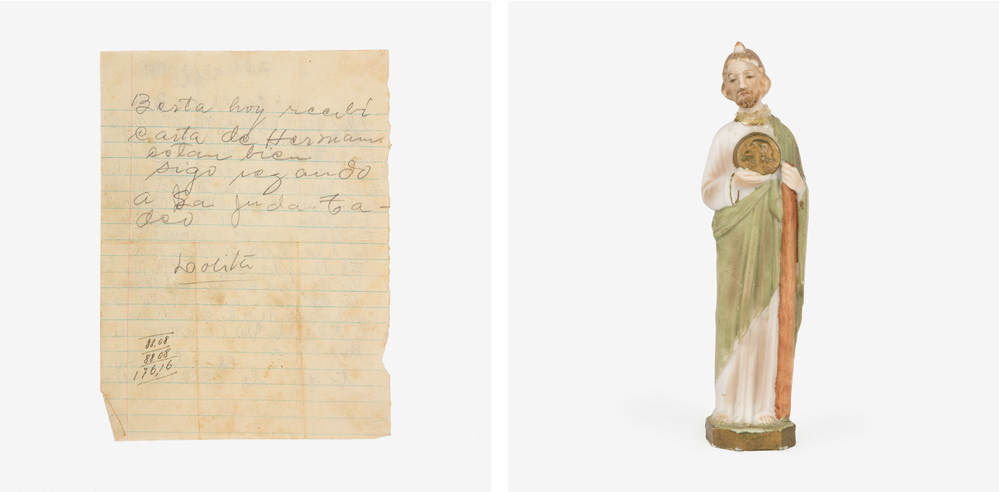 Berta hoy recibí
Carta de Hermam
estan bien
sigo rezando
a Sa Juda Ta-
deo
Lolita
88.08
88.08
176,16